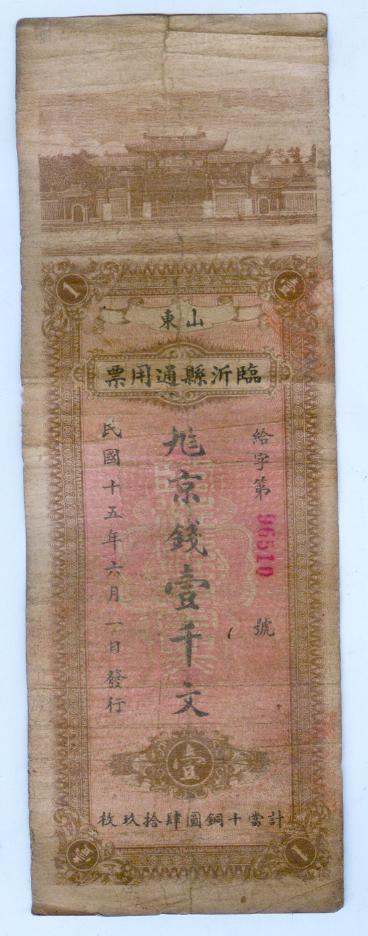 1 壹
山東
臨沂縣通用票
給字第 96510 號
京錢壹千文
民國十五年六月一日發行
壹
計當十銅圓肆拾玖枚
壹 1